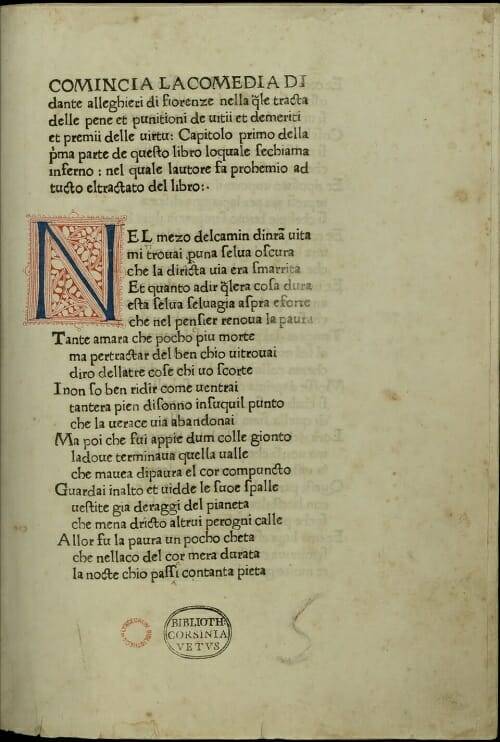 COMINCIA LACOMEDIA DI
dante alleghieri di fiorenze nella q̃le tracta
delle pene et punitioni de uitii et demeriti
et premii delle uirtu: Capitolo primo della
p̃ma parte de questo libro loquale sechiama
inferno : nel quale lautore fa prohemio ad
tucto eltractato del libro:·
NEL mezo delcamin dinr̃a uita
mi trouai puna selua oscura
che la diricta uia era smarrita
Et quanto adir q̃lera cosa dura
esta selua seluagia aspra eforte
che nel pensier renoua la paura
Tante amara che pocho piu morte
ma pertractar del ben chio uitrouai
diro dellatre cose chi uo scorte
I non so ben ridir come uentrai
tantera pien disonno insuquil punto
che la uerace uia abandonai
Ma poi che fui appie dum colle gionto
ladoue terminaua quella ualle
che mauea dipaura el cor compuncto
Guardai inalto et uidde le suoe spalle
uestite gia deraggi del pianeta
che mena dricto altrui perogni calle
Allor fu la paura un pocho cheta
che nellaco del cor mera durata
la nocte chio passi contanta pieta
BIBLIOTH.
CORSINIA
VETVS